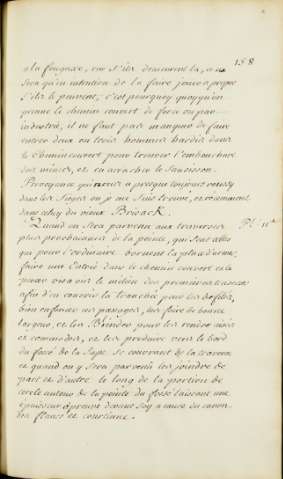 158
a la fougasse, car s'ils demeurent là, ce ne
sera qu'en intention de la faire jouer a propos
s'ils le peuvent, c'est pourquoy quoyqu'on
prenne le chemin couvert de force ou par
industrie, il ne faut pas manquer de faire
entrer deux ou trois hommes hardis dans
le chemin couvert pour trouver l'embouchure
des mines, et en arracher le Saucisson.
qui nous a presque toujours reussy
dans les Sieges où je me suis trouvé, et notamment
dans celuy du vieux Brisack.
Quand on sera parvenu aux traverses
plus prochaines de la pointe, qui sont celles
qui pour l'ordinaire bornent la place d'arme,
faire une dans le chemin couvert et la
vis a vis le milieu des premieres
afin d'en couvrir la tranchée pour les defiler,
bien enfoncer les passages, les faire de bonne
largeur, et les Blinder pour les rendre aisés
et commodes, et les produire vers le bord
du fossé de la Sape se couvrant de la traverse
et quand on y sera parvenu les joindre de
part et d'autre le long de la portion de
cercle autour de la pointe du fossé laissant une
epaisseur a preuve devant soy a cause du canon
des flancs et courtine.
Pl. 11e